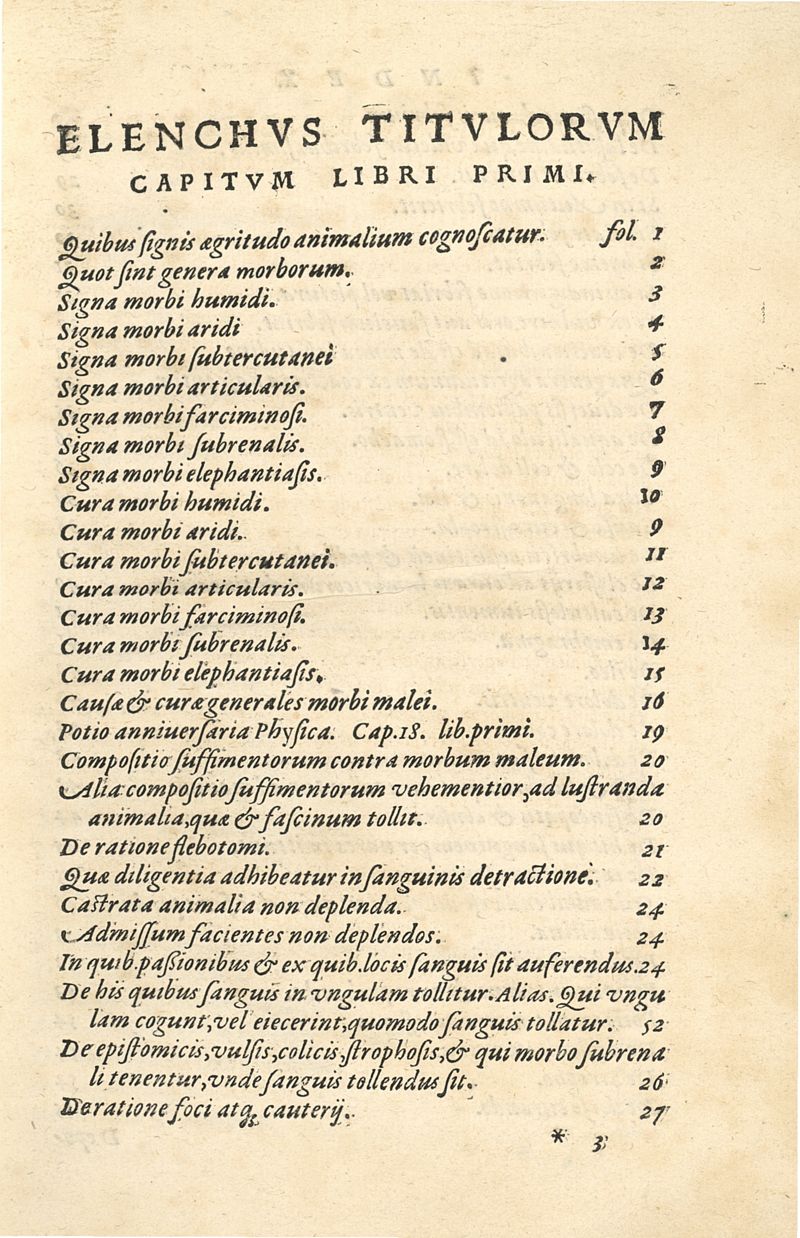 ELENCHVS TITVLORVM
CAPITVM LIBRI PRIMI.
Quibus ſignis ægritudo animalium cognoſcatur. fol. 1
Quot ſint genera morborum. 2
Signa morbi humidi. 3
Signa morbi aridi 4
Signa morbi ſubtercutanei 5
Signa morbi articularis. 6
Signa morbi farciminoſi. 7
Signa morbi ſubrenalis. 8
Signa morbi elephantiaſis. 9
Cura morbi humidi. 10
Cura morbi aridi. 9
Cura morbi ſubtercutanei. 11
Cura morbi articularis. 12
Cura morbi farciminoſi. 13
Cura morbi ſubrenalis. 14
Cura morbi elephantiaſis. 15
Cauſæ & curæ generales morbi malei. 16
Potio anniuerſaria Phyſica. Cap.18. lib.primi. 19
Compoſitio ſuffimentorum contra morbum maleum. 20
Alia compoſitio ſuffimentorum vehementior, ad luſtranda
animalia, quæ & faſcinum tollit. 20
De ratione flebotomi. 21
Quæ diligentia adhibeatur in ſanguinis detractione. 22
Caſtrata animalia non deplenda. 24
Admiſſum facientes non deplendos. 24
In quib. paßionibus & ex quib. locis ſanguis ſit auferendus. 24
De his quibus ſanguis in vngulam tollitur. Alias. Qui vngu
lam cogunt, vel eiecerint, quomodo ſanguis tollatur. 52
De epiſtomicis, vulſis, colicis, ſtrophoſis, & qui morbo ſubrena
li tenentur, vnde ſanguis tollendus ſit. 26
De ratione foci atq; cauterij. 27
* 3